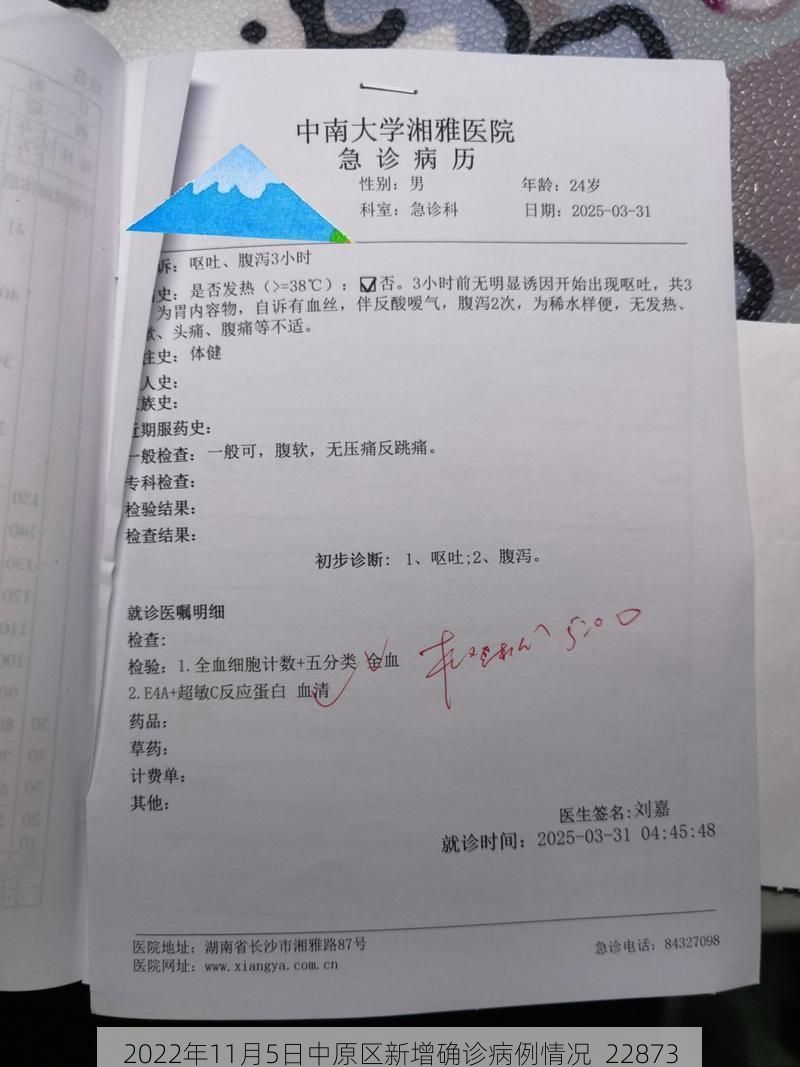 中南大学湘雅医院
急诊病历
性别: 男 年龄: 24岁
科室: 急诊科 日期: 2025-03-31
诉: 呕吐、腹泻3小时
史: 是否发热（>=38℃）: ☑否。3小时前无明显诱因开始出现呕吐，共3
为胃内容物，自诉有血丝，伴反酸嗳气，腹泻2次，为稀水样便，无发热、
、头痛、腹痛等不适。
史: 体健
人史:
族史:
近期服药史:
一般检查: 一般可，腹软，无压痛反跳痛。
专科检查:
检验结果:
检查结果:
初步诊断: 1、呕吐;2、腹泻。
就诊医嘱明细
检查:
检验: 1.全血细胞计数+五分类 全血
2.E4A+超敏C反应蛋白 血清
5:00
药品:
草药:
计费单:
其他:
医生签名:刘嘉
就诊时间: 2025-03-31 04:45:48
医院地址: 湖南省长沙市湘雅路87号 急诊电话: 84327098
医院网址: www.xiangya.com.cn
2022年11月5日中原区新增确诊病例情况 22873